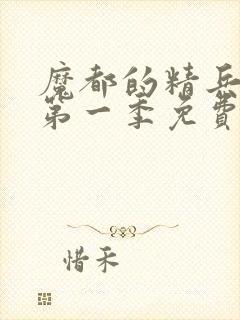 魔都的精兵
第一季免費
惜禾